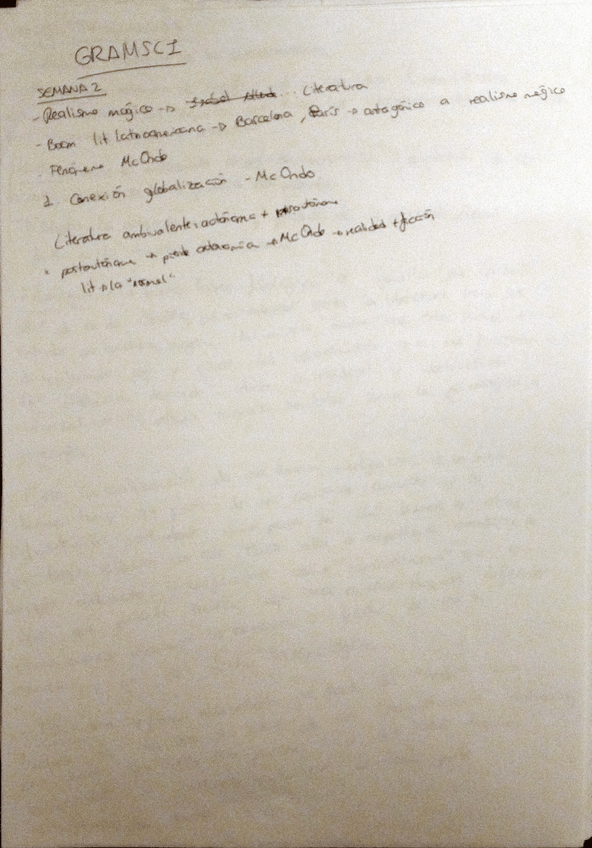 GRAMSCI
SEMANA 2
- Realismo mágico → Isabel Allende... Literatura
- Boom lit latinoamericana → Barcelona, París → antagónico a realismo mágico
. Fenómeno McOndo
1 Conexión globalización - McOndo
Literatura ambivalente: autónoma + postautónoma
* postautónoma → pierde autonomía → McOndo → realidad + ficción
lit → la "normal"